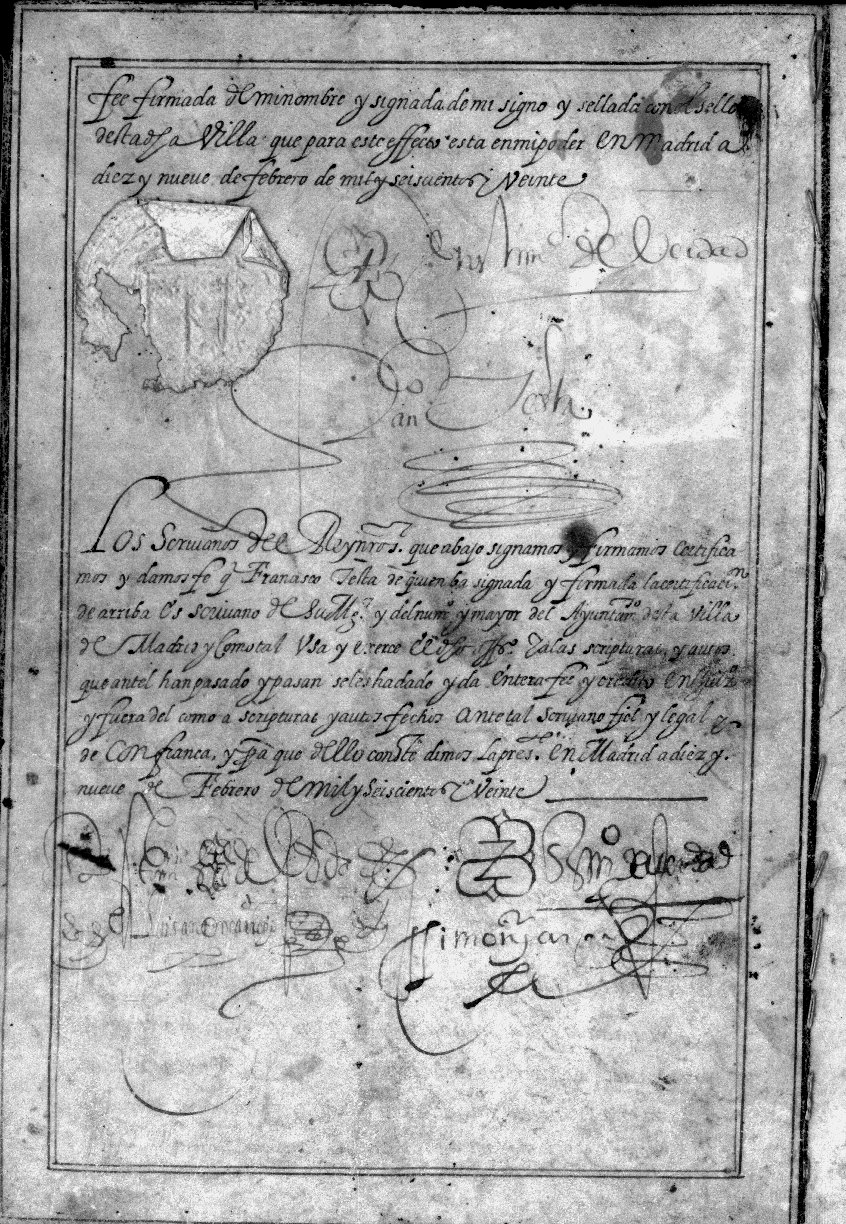 fee firmada del mi nombre y signada de mi signo y sellada con el sello
desta dha Villa que para este effecto esta en mi poder En Madrid a
diez y nueve de febrero de mil y seiscientos y Veinte
En testimo de Verdad
franco Testa
Los Scriuanos del Rey nros. que abajo signamos y firmamos Certifica
mos y damos fe q Francisco Testa de quien ba signada y firmada la certificacion
de arriba Es scriuano de Su Mg. y del num.o y mayor del Ayuntam.to desta Villa
de Madrid y Como tal Vsa y exerce El dho offo. Y a las scripturas, y autos
que antel han pasado y pasan se les ha dado y da Entera fee y credito En juiz.o
y fuera del como a scripturas y autos fechos Ante tal Scriuano fiel y legal y
de Confianca, y pa que dello conste dimos la pres.te En Madrid a diez y
nueve de Febrero de mil y Seiscientos y Veinte
Simon